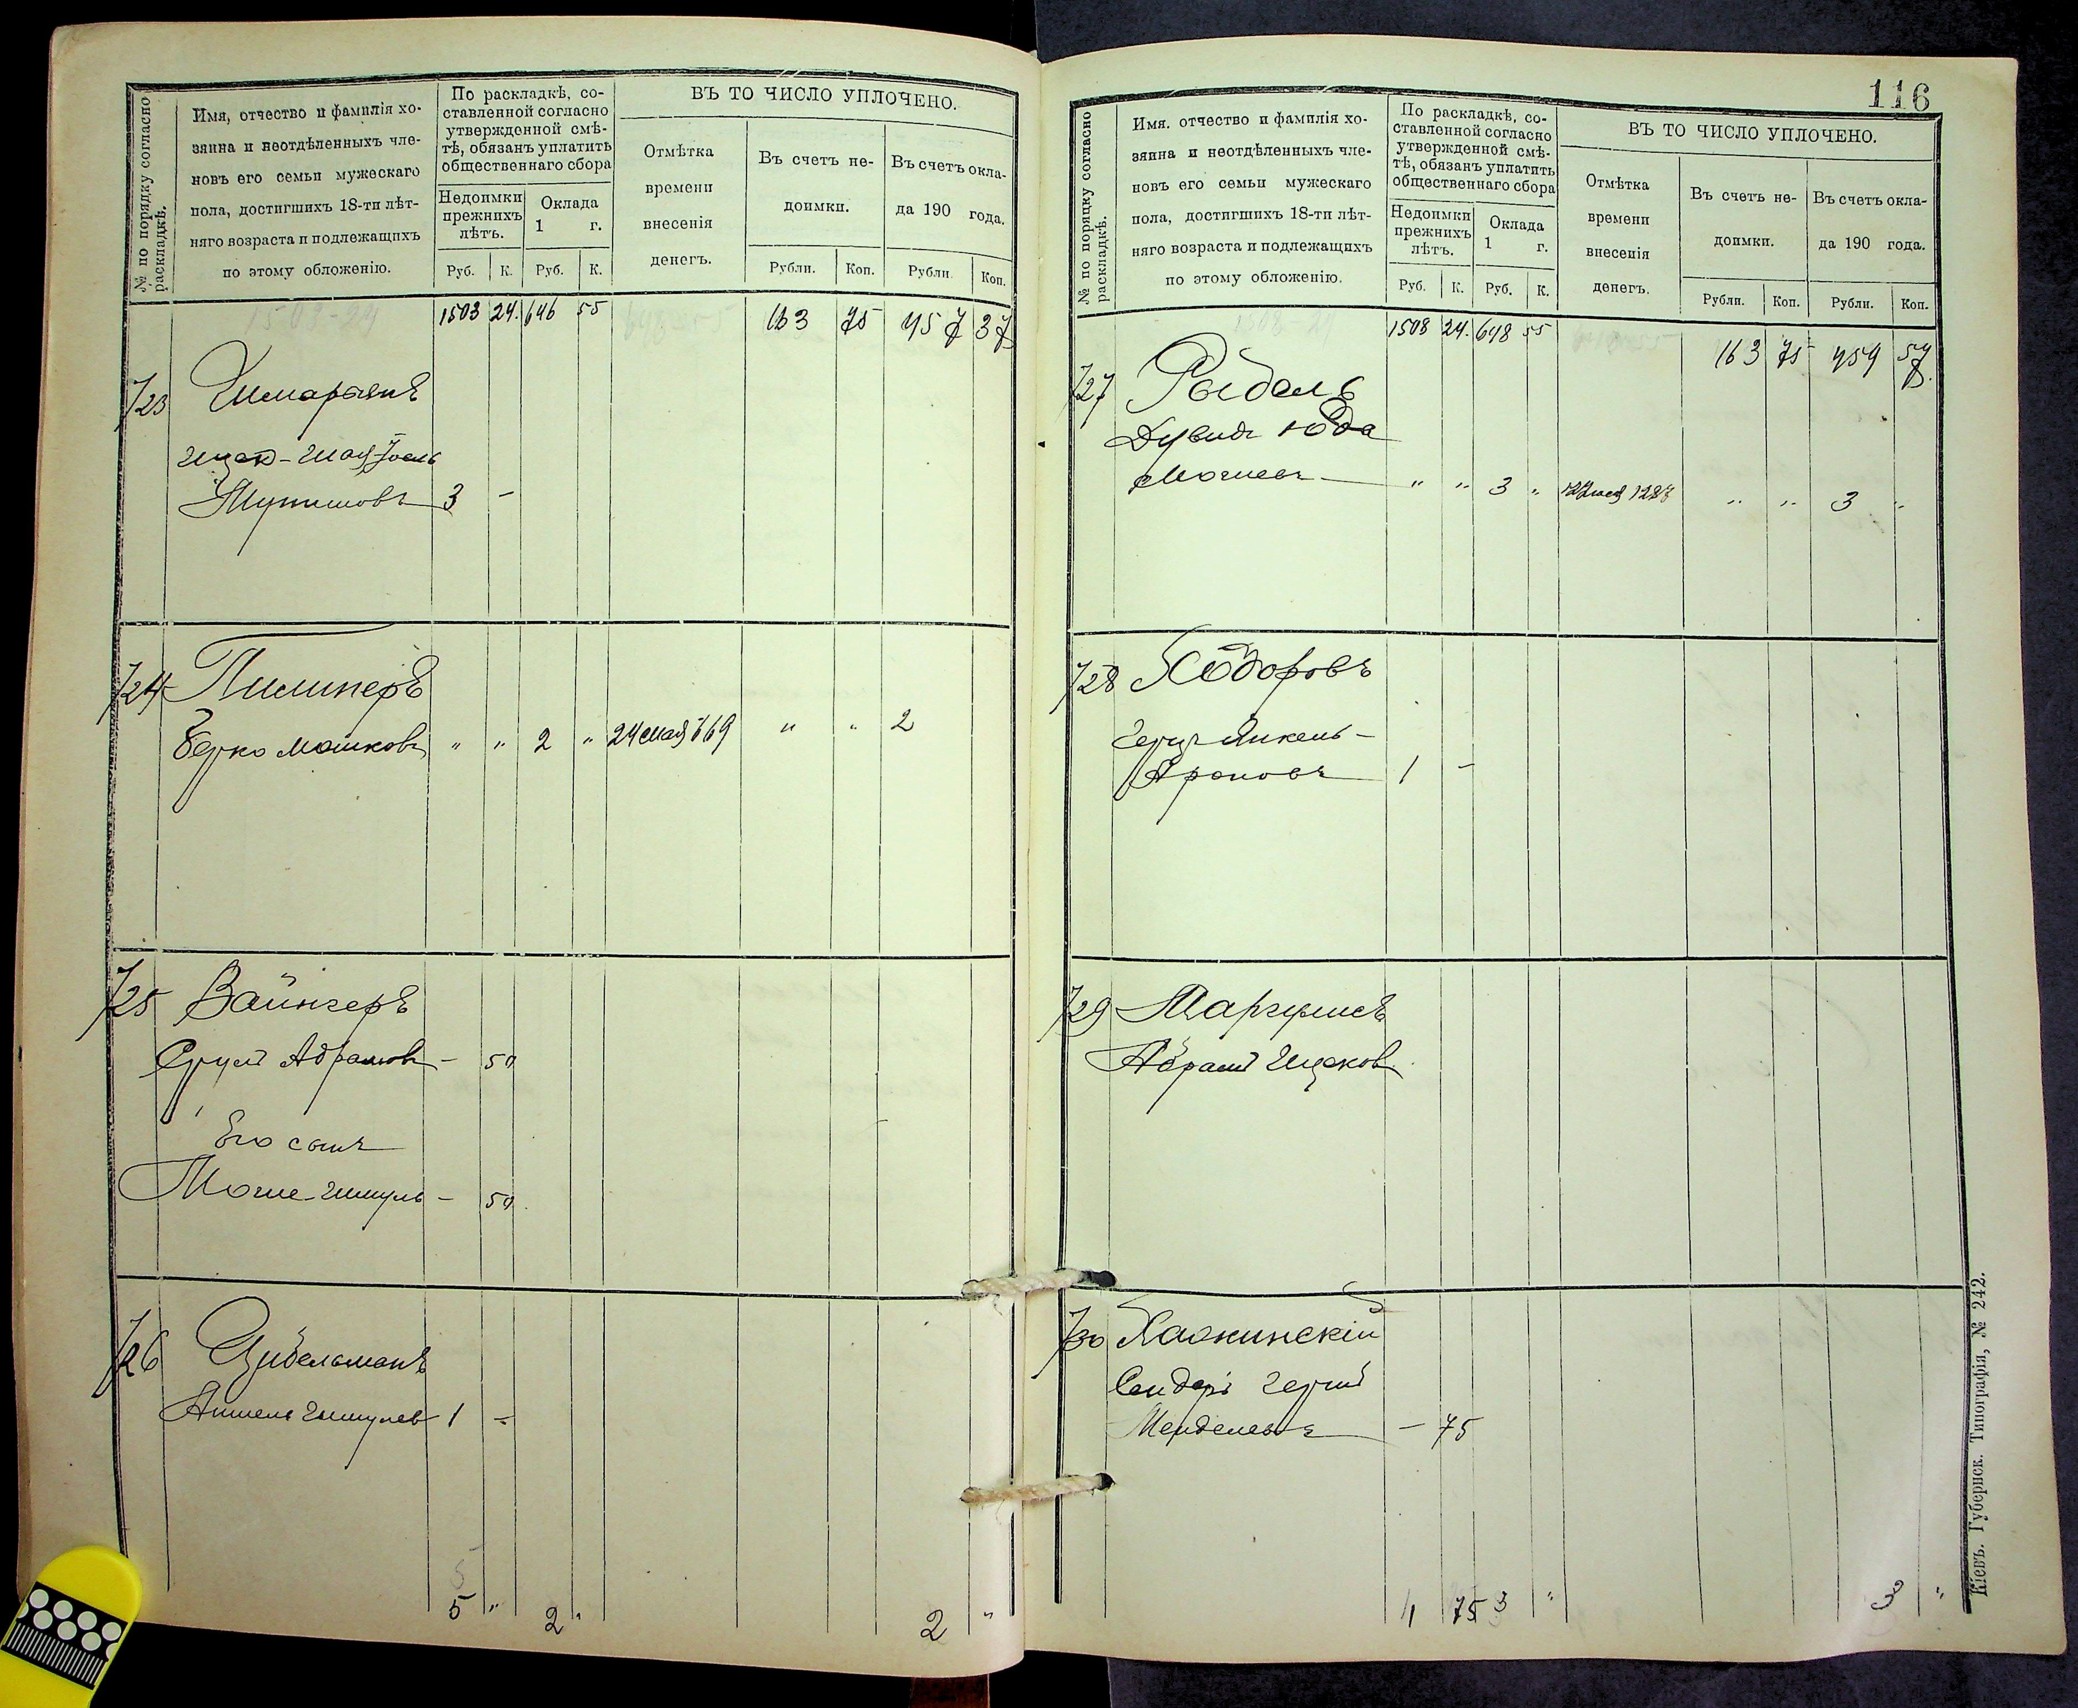 № по порядку согласно раскладкѣ.
Имя, отчество и фамилія хо-
зяина и неотдѣленныхъ чле-
новъ его семьи мужескаго
пола, достигшихъ 18-ти лѣт-
няго возраста и подлежащихъ
по этому обложенію.
По раскладкѣ, со-
ставленной согласно
утвержденной смѣ-
тѣ, обязанъ уплатить
общественнаго сбора
Недоимки прежнихъ лѣтъ.
Оклада 1 г.
Руб. К. Руб. К.
ВЪ ТО ЧИСЛО УПЛОЧЕНО.
Отмѣтка
времени
внесенія
денегъ.
Въ счетъ не-
доимки.
Рубли. Коп.
Въ счетъ окла-
да 190 года.
Рубли. Коп.
1503 24. 646 55 163 75 457 37
723
Ицек-Шая-Іось
3 -
724 Пилиперъ
Берко Мошковъ " " 2 " 24 мая 669 " " 2
725 Вайнгеръ
Сруль Абрамовъ - 50
Его сынъ
Моше-Шмуль - 50
726 Цубельманъ
Аншель Шмулев 1 -
5 " 2 " 2 "
116
№ по порядку согласно раскладкѣ.
Имя. отчество и фамилія хо-
зяина и неотдѣленныхъ чле-
новъ его семьи мужескаго
пола, достигшихъ 18-ти лѣт-
няго возраста и подлежащихъ
по этому обложенію.
По раскладкѣ, со-
ставленной согласно
утвержденной смѣ-
тѣ, обязанъ уплатить
общественнаго сбора
Недоимки прежнихъ лѣтъ.
Оклада 1 г.
Руб. К. Руб. К.
ВЪ ТО ЧИСЛО УПЛОЧЕНО.
Отмѣтка
времени
внесенія
денегъ.
Въ счетъ не-
доимки.
Рубли. Коп.
Въ счетъ окла-
да 190 года.
Рубли. Коп.
1508 24. 648 55 163 75 459 57
727 Рыдель
Дувидъ Юда
" " 3 " " " 3 "
728 Ходоровъ
Герцъ Янкель-
Ароновъ 1 -
729 Маргулисъ
Абрамъ Ицковъ
730 Хаскинскій
Сендеръ
Менделевъ - 75
1 75 3 " 3 "
Кіевъ. Губернск. Типографія, № 242.